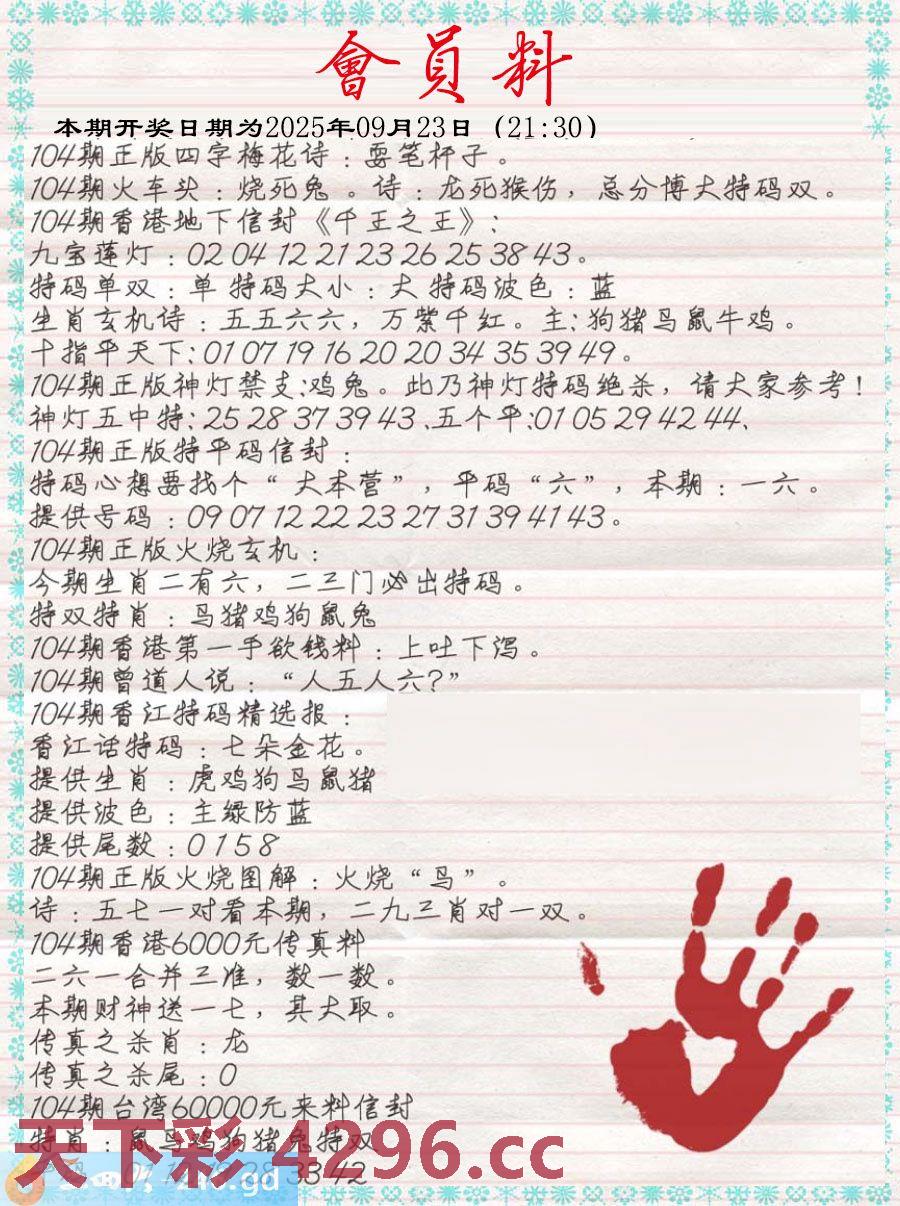 會員料
本期开奖日期为2025年09月23日（21:30）
104期正版四字梅花诗：耍笔杆子。
104期火车头：烧死兔 。诗：龙死猴伤，总分博大特码双。
104期香港地下信封《千王之王》：
九宝莲灯：02 04 12 21 23 26 25 38 43。
特码单双：单 特码大小：大 特码波色：蓝
生肖玄机诗：五五六六，万紫千红。主：狗猪马鼠牛鸡。
十指平天下：01 07 19 16 20 20 34 35 39 49。
104期正版神灯禁支：鸡兔。此乃神灯特码绝杀，请大家参考！
神灯五中特：25 28 37 39 43 、五个平：01 05 29 42 44、
104期正版特平码信封：
特码心想要找个“ 大本营”，平码“六”，本期：一六。
提供号码：09 07 12 22 23 27 31 39 41 43。
104期正版火烧玄机：
今期生肖二有六，二三门必出特码。
特双特肖：马猪鸡狗鼠兔
104期香港第一手欲钱料：上吐下泻。
104期曾道人说：“人五人六？”
104期香江特码精选报：
香江话特码：七朵金花。
提供生肖：虎鸡狗马鼠猪
提供波色：主绿防蓝
提供尾数：0 1 5 8
104期正版火烧图解：火烧“马”。
诗：五七一对看本期，二九三肖对一双。
104期香港6000元传真料
二六一合并三准，数一数。
本期财神送一七，其大取。
传真之杀肖：龙
传真之杀尾：0
104期台湾60000元来料信封
特肖：鼠马鸡狗猪兔特双
天下彩 4296.cc
33 42